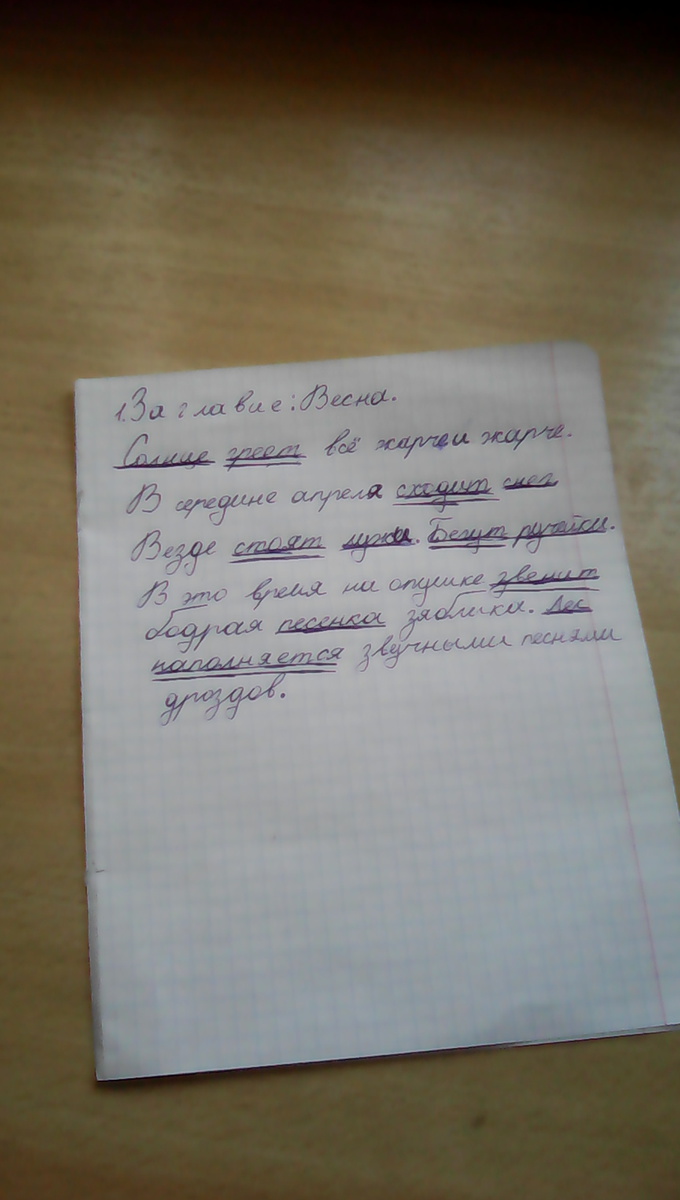 1. Заглавие: Весна.
Солнце греет всё жарче и жарче.
В середине апреля сходит снег
Везде стоят лужи. Бегут ручейки.
В это время на опушке звенит
бодрая песенка зяблики. Лес
наполняется звучными песнями
дроздов.